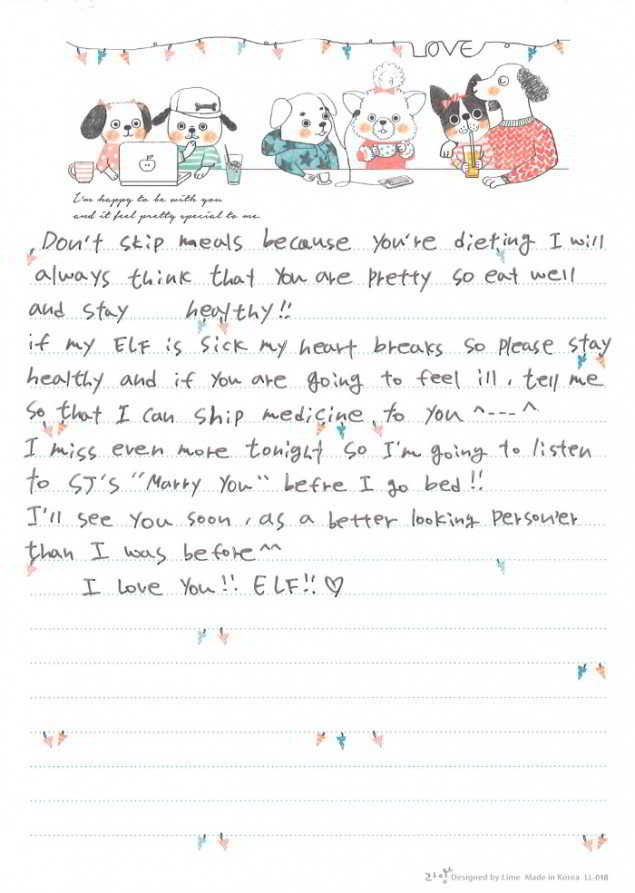 LOVE
I'm happy to be with you
and it feel pretty special to me
, Don't skip meals because you're dieting I will
always think that you are pretty so eat well
and stay healthy!!
if my ELF is sick my heart breaks so please stay
healthy and if you are going to feel ill, tell me
so that I can ship medicine to you ^---^
I miss even more tonight so I'm going to listen
to SJ'S "Marry You" befre I go bed!!
I'll see you soon, as a better looking person'er
than I was before^^
I love you!! ELF!! ♡
라임 Designed by Lime Made in Korea LL-018